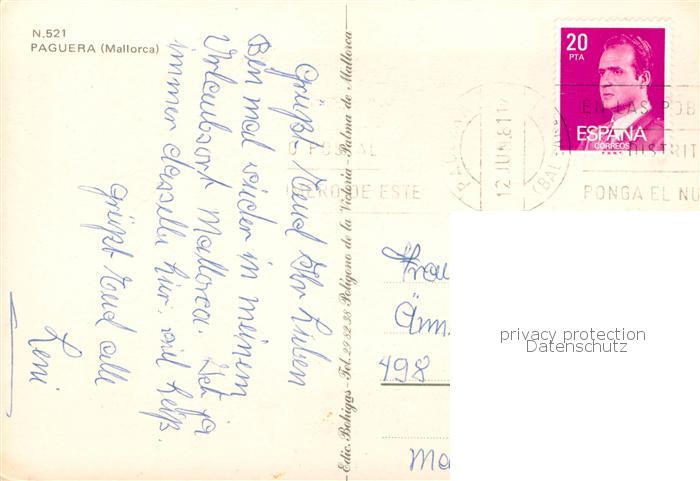 N.521
PAGUERA (Mallorca)
Grüßt Eend Ihr Lieben
Ben mal wieder in meinem
Urlaubsort Mallorca. Ist ja
immer dasselbe hier, viel heiß.
grüßt Eud alle
Leni
Edic. Bohigas - Tel. 22 32 38 Polígono de la Victoria - Palma de Mallorca
20
PTA
ESPAÑA
CORREOS
F.N.M.T.
12 JUN 81
EN LAS POB
DISTRIT
PONGA EL NU
O POSTAL
MERO DE ESTE
Frau
Änn
498
privacy protection
Datenschutz